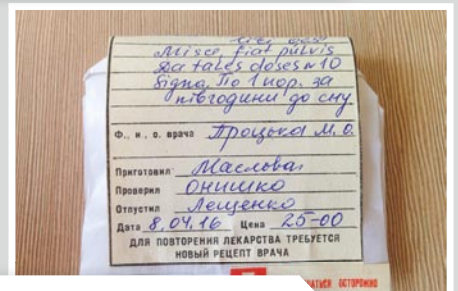 Misce, fiat pulvis
Da tales doses №10
Signa. По 1 пор. за
півгодини до сну
Ф., и. о. врача Троцька М. О.
Приготовил Маслова
Проверил Онишко
Отпустил Лещенко
Дата 8.04.16 Цена 25-00
ДЛЯ ПОВТОРЕНИЯ ЛЕКАРСТВА ТРЕБУЕТСЯ
НОВЫЙ РЕЦЕПТ ВРАЧА
ОСТОРОЖНО